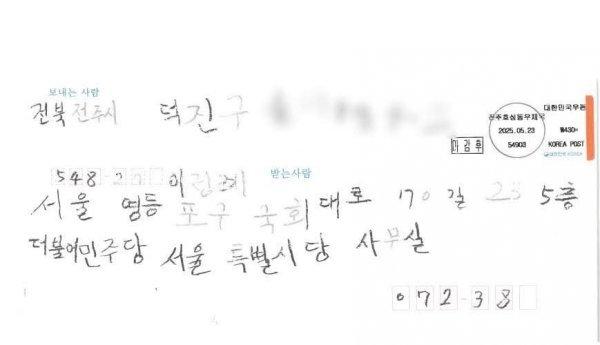 보내는 사람
전북 전주시 덕진구
대한민국우표
전주효심동우체국
2025.05.23
54903
₩430
KOREA POST
마감후
548
받는사람
서울 영등포구 국회대로 70길 23 5층
더불어민주당 서울특별시당 사무실
072-38